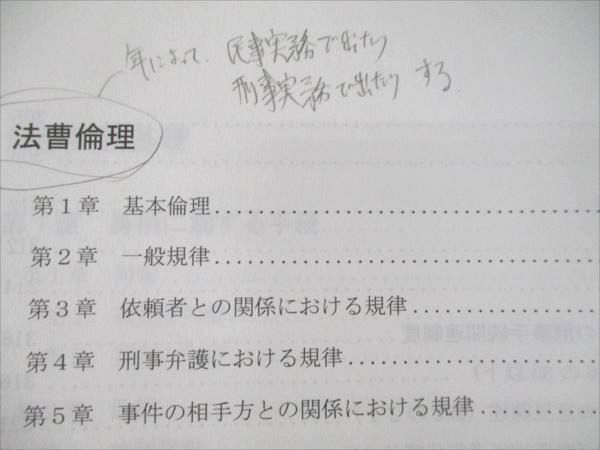 年によって、民事実務で出たり
刑事実務で出たりする
法曹倫理
第1章 基本倫理
第2章 一般規律
第3章 依頼者との関係における規律
第4章 刑事弁護における規律
第5章 事件の相手方との関係における規律